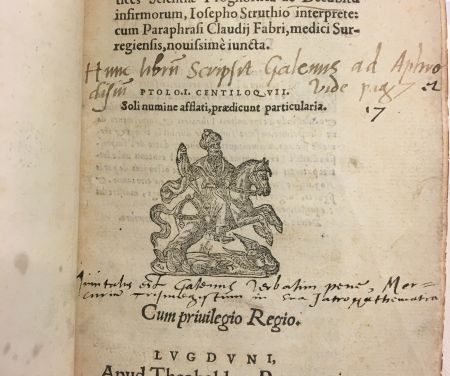 tices Scientiæ Prognostica de Decubitu
infirmorum, Iosepho Struthio interprete:
cum Paraphrasi Claudij Fabri, medici Sur-
regiensis, nouissimè iuncta.
Hunc librũ Scripsit Galenus ad Aphro
disium vide pag 7 et
17
PTOLO. I. CENTILOQ. VII.
Soli numine afflati, prædicunt particularia.
Imitatus est Galenus verbatim pene, Mer-
curium Trismegistum in sua Iatromathematica
Cum priuilegio Regio.
LVGDVNI,
Apud Theobaldum